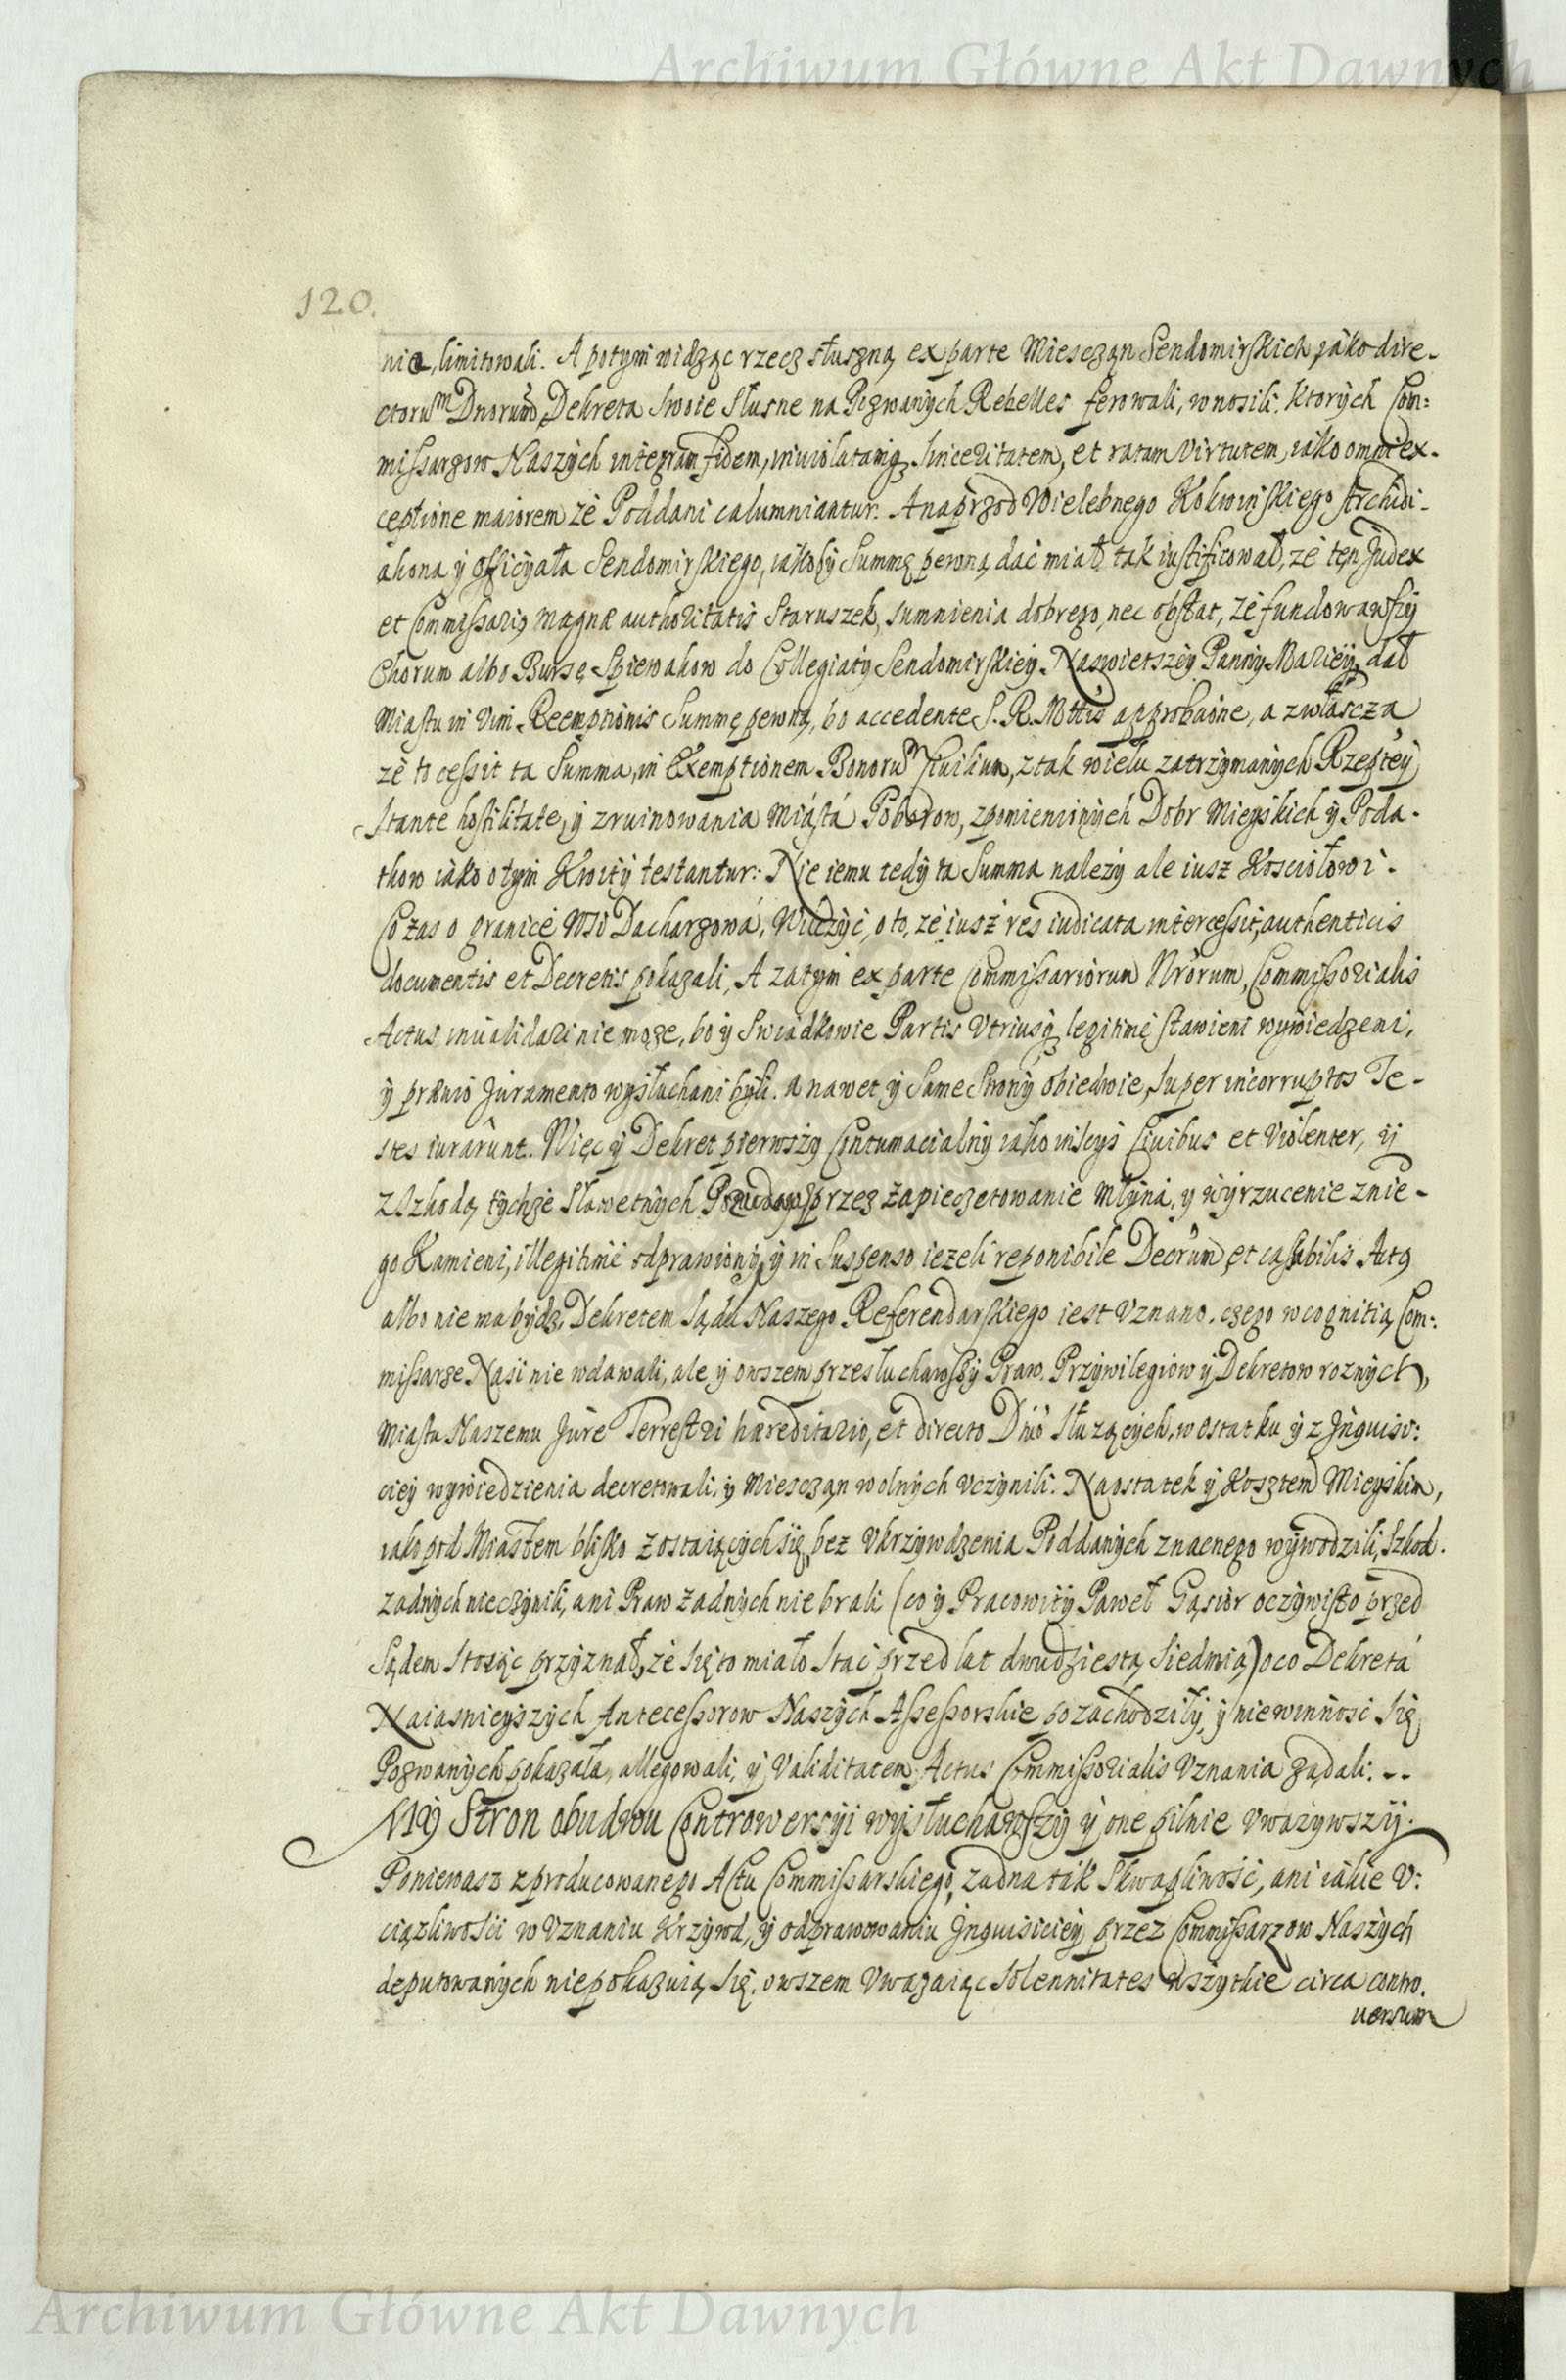 Archiwum Główne Akt Dawnych
120.
nie, limitowali. A potym widząc rzecz słuszną ex parte Miesczan Sendomirskich, jako dire-
ctorum Dnorum, Dekreta swoie słusne na Pozwanych Rebelles ferowali, wnosili. Ktorych Com:
missarzow Naszych integram fidem, inuiolatamq. sinceritatem, et ratam virtutem, iako omni ex-
ceptione maiorem że Poddani calumniantur. A naprzod Wielebnego Kokwinskiego Archidi-
akona y Officyała Sendomirskiego, iakoby Summę pewną dać miał, tak iustificował, że ten Judex
et Commissari9 magnæ authoritatis Staruszek, sumnienia dobrego, nec obstat, że fundowawszy
Chorum albo Bursę Spiewakow do Collegiaty Sendomirskiey Naswietszey Panny Mariey, dał
Miastu in vim Reemptionis Summę pewną, bo accedente S. R. Mttis approbaone, a zwłaszcza
że to cessit ta Summa, in Exemptionem Bonorum Ciuilium, z tak wielu zatrzymanych Rzeptey
stante hostilitate, y zruinowania Miasta Poborow, z pomienionych Dobr Mieyskich y Poda-
tkow iako o tym Kwity testantur: Nie iemu tedy ta Summa należy ale iusz Kosciołowi.
Co zas o granice Wsi Dacharzowa, Wilczyc, o to, że iusz res iudicata intercessit, authenticis
documentis et Decretis pokazali, A zatym ex parte Commissariorum Nrorum, Commissorialis
Actus inualidari nie może, bo y Swiadkowie Partis Vtriusq. legitime stawieni wywiedzeni,
y præuio Juramento wysłuchani byli. a nawet y Same Strony obiedwie, super incorruptos Te-
stes iurarunt. Więc y Dekret pierwszy Contumacialny iako insciis Ciuibus et violenter, y
z szkodą tychże Sławetnych przez zapieczetowanie Młyna, y wyrzucenie z nie-
go Kamieni, illegitime odprawiony, y in Suspenso, iezeli reponibile Decrum et cassabilis Act9
albo nie ma bydz, Dekretem Sądu Naszego Referendarskiego iest Vznano. czego w cognitią Com:
missarze Nasi nie wdawali, ale y owszem przesłuchawszy Praw, Przywilegiow y Dekretow roznych,
Miastu Naszemu Jure Terrestri hæreditario, et directo Dnio służących, w ostatku y z Jnquisi:
ciey wywiedzienia decretowali, y Miesczan wolnych vczynili. Naostatek y Kosztem Mieyskim,
iako pod Miastem blisko zostaiących się, bez Vkrzywdzenia Poddanych znacnego wywodzili, Szkod.
zadnych nie czynili, ani Praw żadnych nie brali (co y Pracowity Paweł Gąsior oczywisto przed
Sądem stoiąc przyznał, że się to miało stać przed lat dwudziestą siedmią) oco Dekreta
Naiasnieyszych Antecessorow Naszych Assessorskie pozachodziły, y niewinnosc się
Pozwanych pokazała, allegowali, y Validitatem Actus Commissorialis Vznania żądali. --
My Stron obudwu Controwersyi wysłuchawszy y one pilnie Vważywszy.
Poniewasz z producowanego Actu Commissarskiego, żadna tak Skwapliwość, ani iakie V:
ciążliwości w Vznaniu Krzywd, y odprawowaniu Jnquisiciey przez Commissarzow Naszych
deputowanych niepokazuią się. owszem Vważaiąc solennitates wszytkie circa contro.
uersum
Archiwum Główne Akt Dawnych